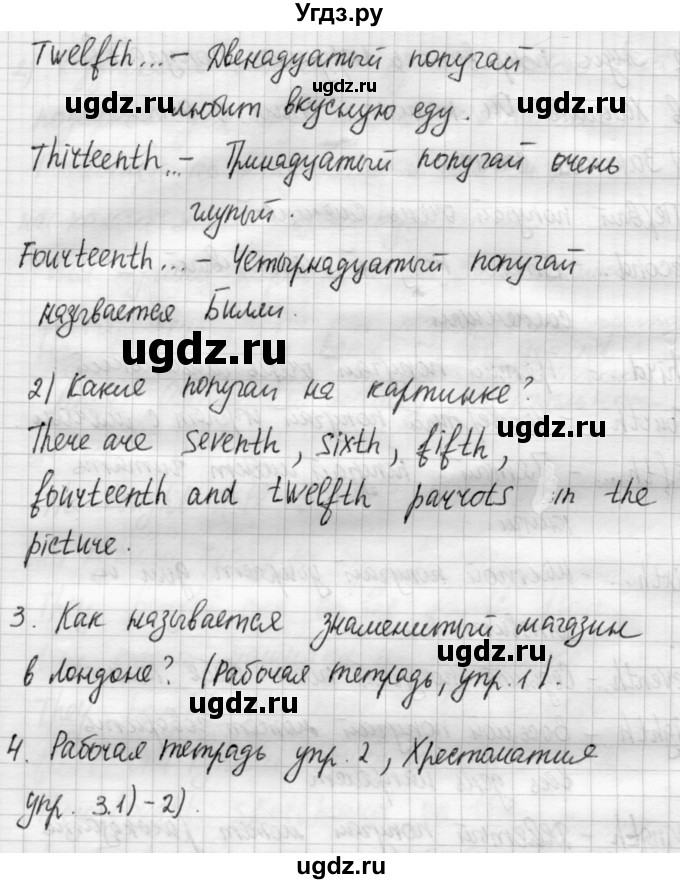 Угдз.ру
Twelfth...- Двенадцатый попугай
ugdz.ru
ugdz.ru
ugdz.ru
любит вкусную еду.
Thitteenth...- Тринадцатый попугай очень
ugdz.ru
глупый.
Fourteenth...- Четырнадцатый попугай
называется Билли.
ugdz.ru
2) Какие попугаи на картинке?
ugdz.ru
There are seventh, sixth, fifth,
fourteenth and twelfth parrots in the
picture.
3. Как называется знаменитый магазин
ugdz.ru
в Лондоне? (Рабочая тетрадь, упр. 1).
ugdz.ru
4. Рабочая тетрадь упр. 2, Хрестоматия
упр. 3.1)-2).
ugdz.ru
ugdz.ru
ugdz.ru